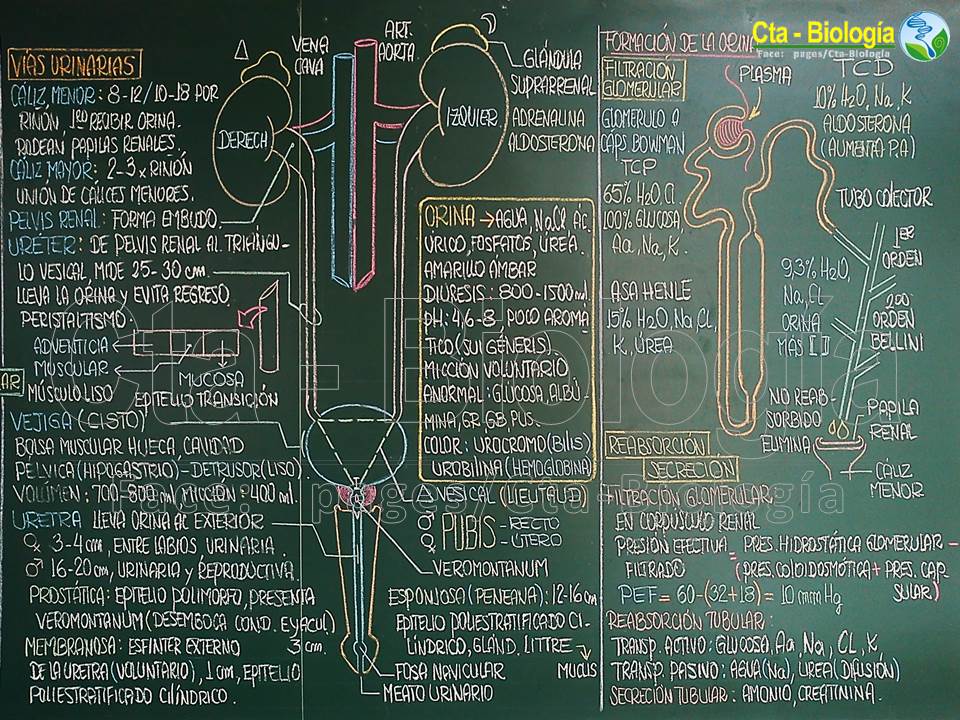 Cta - Biología
Face: pages/Cta-Biología
VÍAS URINARIAS
CÁLIZ MENOR: 8-12/10-18 POR
RIÑÓN, 1ERO RECIBIR ORINA.
RODEAN PAPILAS RENALES.
CÁLIZ MAYOR: 2-3 x RIÑÓN
UNIÓN DE CÁLICES MENORES.
PELVIS RENAL: FORMA EMBUDO.
URÉTER: DE PELVIS RENAL AL TRIÁNGU-
LO VESICAL, MIDE 25-30 cm.
LLEVA LA ORINA y EVITA REGRESO.
PERISTALTISMO.
ADVENTICIA
MUSCULAR
MÚSCULO LISO
MUCOSA
EPITELIO TRANSICIÓN
AR
VEJIGA (CISTO)
BOLSA MUSCULAR HUECA, CAVIDAD
PÉLVICA (HIPOGASTRIO)-DETRUSOR (LISO)
VOLÚMEN: 700-800ml MICCIÓN: 400 ml.
URETRA LLEVA ORINA AL EXTERIOR
♀ 3-4 cm, ENTRE LABIOS, URINARIA.
♂ 16-20 cm, URINARIA y REPRODUCTIVA.
PROSTÁTICA: EPITELIO POLIMORFO, PRESENTA
VEROMONTANUM (DESEMBOCA COND. EYACUL.) 3 cm.
MEMBRANOSA: ESFINTER EXTERNO
DE LA URETRA (VOLUNTARIO), 1 cm, EPITELIO
POLIESTRATIFICADO CILÍNDRICO.
VENA CAVA
ART. AORTA
DERECH
IZQUIER.
GLÁNDULA
SUPRARRENAL
ADRENALINA
ALDOSTERONA
ORINA → AGUA, NaCl, ÁC.
ÚRICO, FOSFATOS, ÚREA.
AMARILLO ÁMBAR
DIURESIS: 800-1500 ml.
PH: 4,6-8 POCO AROMÁ
TICO (SUI GÉNERIS).
MICCIÓN VOLUNTARIO
ANORMAL: GLUCOSA, ALBÚ-
MINA, GR, GB, PUS.
COLOR: UROCROMO (BILIS)
UROBILINA (HEMOGLOBINA)
△ VESICAL (LIEUTAUD)
♂ ♀ PUBIS - RECTO
- ÚTERO
VEROMONTANUM
ESPONJOSA (PENEANA): 12-16 cm
EPITELIO POLIESTRATIFICADO CI-
LÍNDRICO, GLÁND. LITTRE
MUCUS
FOSA NAVICULAR
MEATO URINARIO
FORMACIÓN DE LA ORINA
FILTRACIÓN
GLOMERULAR
GLOMERULO A
CÁPS. BOWMAN
TCP
65% H2O, Cl
100% GLUCOSA,
Aa, Na, K.
ASA HENLE
15% H2O, Na, Cl,
K, ÚREA
PLASMA
TCD
10% H2O, Na, K
ALDOSTERONA
(AUMENTA P.A)
TUBO COLECTOR
1ER
ORDEN
9,3% H2O,
Na, Cl
ORINA
MÁS [ ]
2DO
ORDEN
BELLINI
NO REAB-
SORBIDO
ELIMINA
PAPILA
RENAL
CÁLIZ
MENOR
REABSORCIÓN
SECRECIÓN
FILTRACIÓN GLOMERULAR,
EN CORPÚSCULO RENAL
PRESIÓN EFECTIVA FILTRADO = PRES. HIDROSTÁTICA GLOMERULAR -
(PRES. COLOIDOSMÓTICA + PRES. CAP
SULAR)
PEF = 60-(32+18) = 10 mm Hg
REABSORCIÓN TUBULAR:
TRANSP. ACTIVO: GLUCOSA, Aa, Na, CL, K,
TRANSP. PASIVO: AGUA (Na), ÚREA (DIFUSIÓN)
SECRECIÓN TUBULAR: AMONIO, CREATININA.
Cta - Biología
Face: pages/Cta-Biología